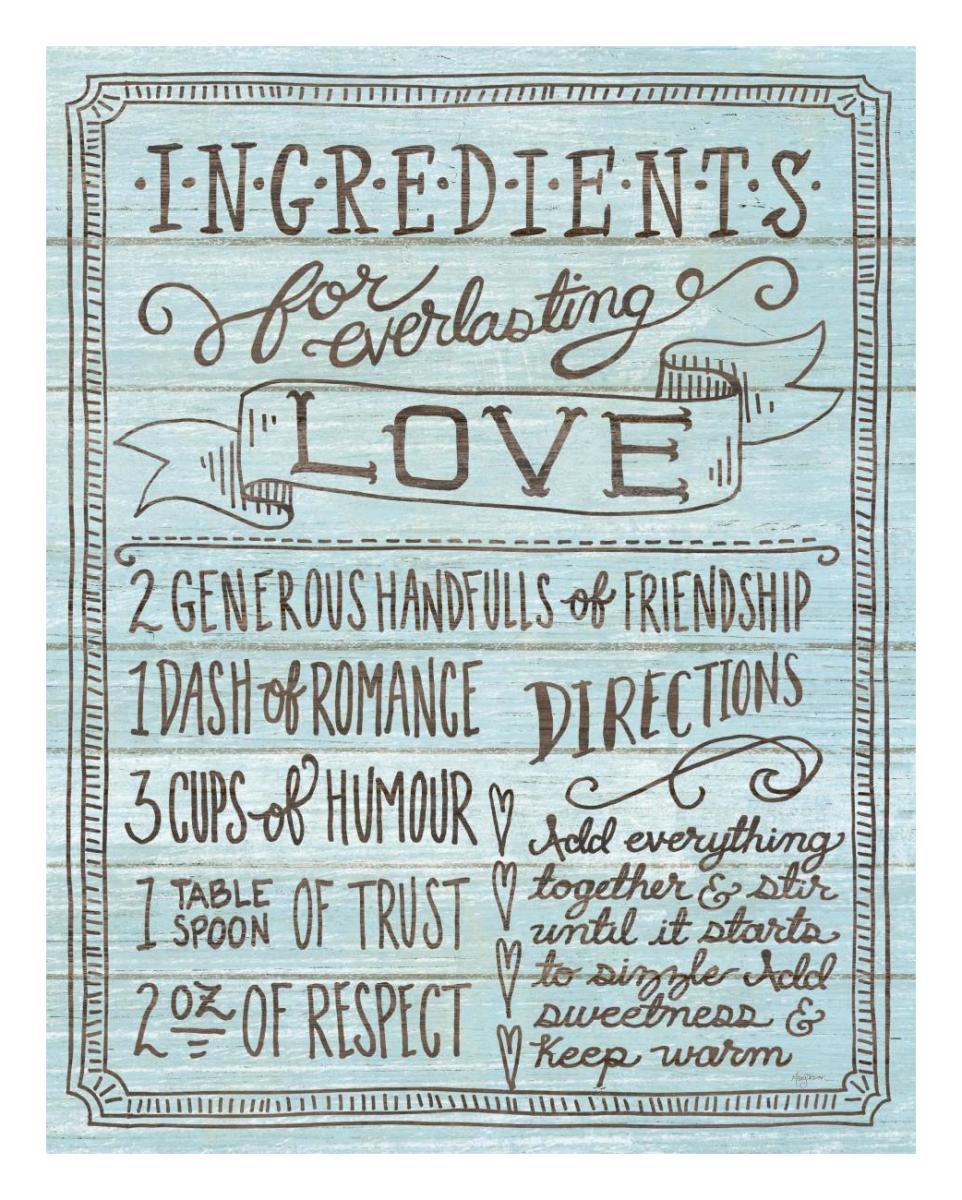 ·I·N·G·R·E·D·I·E·N·T·S·
for
everlasting
LOVE
2 GENEROUS HANDFULLS of FRIENDSHIP
1 DASH of ROMANCE
3 CUPS of HUMOUR
1 TABLE
SPOON OF TRUST
2 OZ OF RESPECT
DIRECTIONS
Add everything
together & stir
until it starts
to sizzle Add
sweetness &
Keep warm